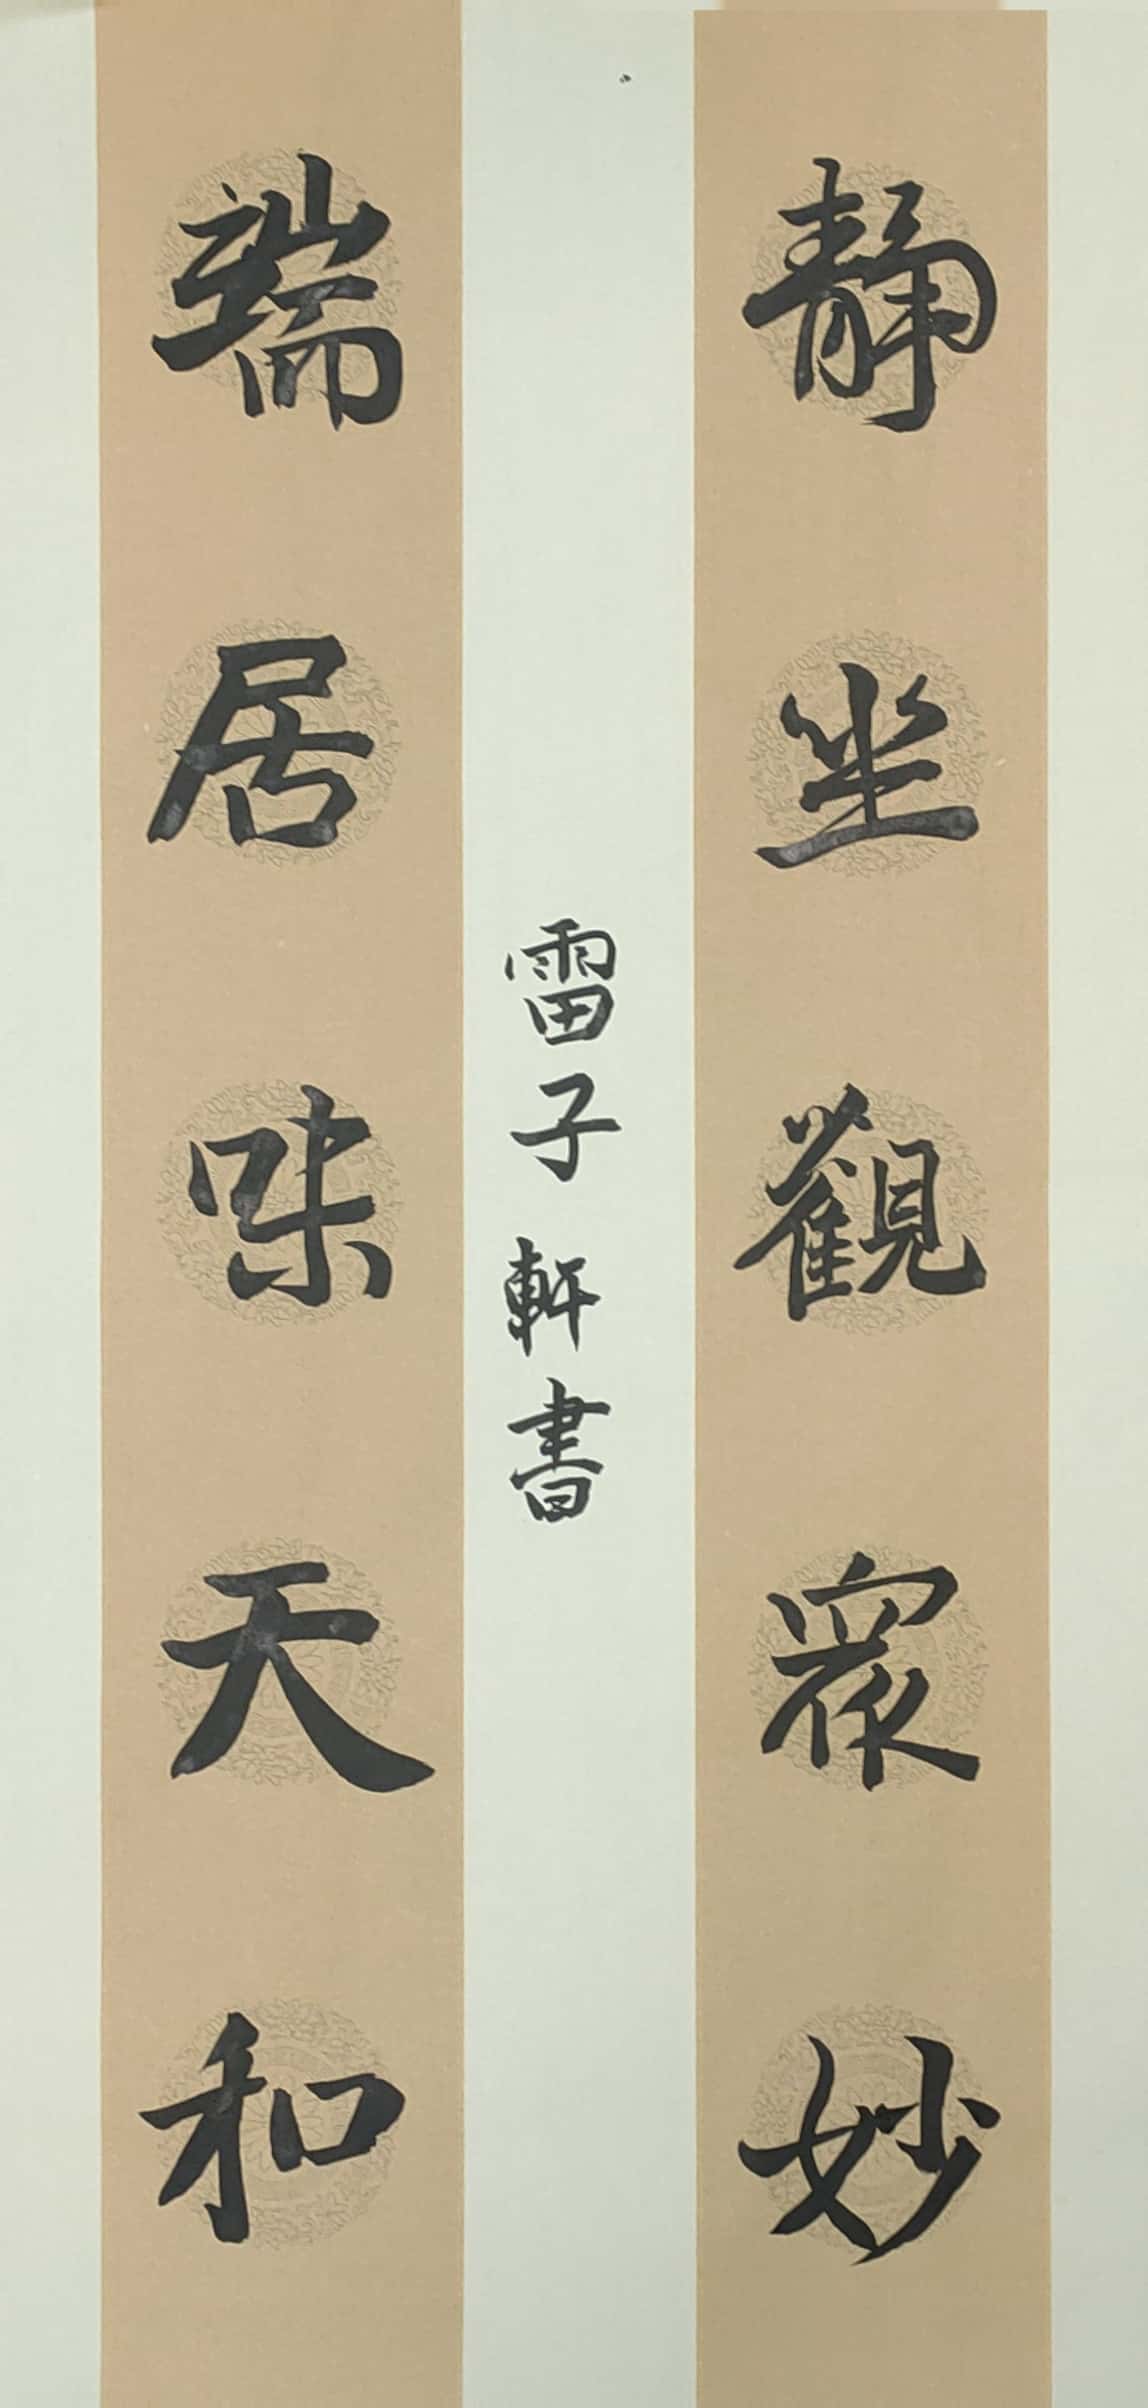 靜坐觀衆妙
端居味天和
雷子軒書